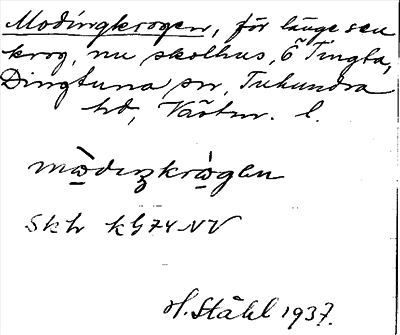 Modingkrogen, för länge sen
krog, nu skolhus, Ö Tingta,
Dingtuna sn, Tuhundra
hd, Västm. l.
mɷ̀dɩŋkrɷ̀gən
Skh kG74 NV
H. Ståhl 1937.